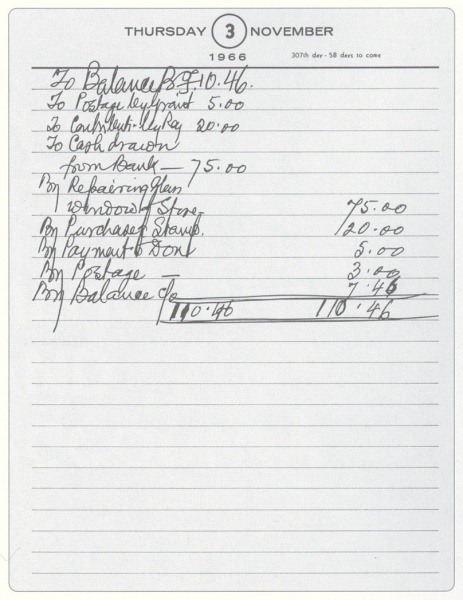 THURSDAY 3 NOVEMBER
1966
307th day - 58 days to come
To Balance B/F 10.46.
To Postage by Grant 5.00
To Contribut. by Ray 20.00
To Cash drawn
from Bank — 75.00
By Repairing Glass
Window of Store, 75.00
By Purchase of Stamp. 20.00
By Payment to Don 5.00
By Postage — 3.00
By Balance c/o 7.46
110.46 110.46